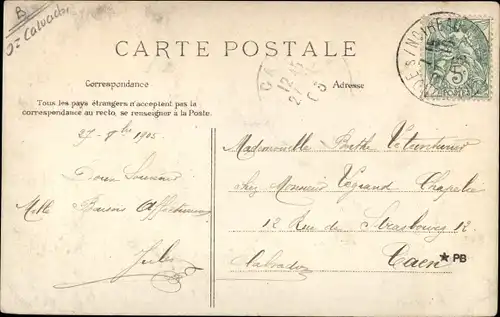 B
02 Calvados
CARTE POSTALE
Correspondance
Adresse
Tous les pays étrangers n'acceptent pas la
correspondance au recto, se renseigner à la Poste.
27 - 7bre 1905
Doux Souvenir
Mille Baisers Affectueux
Jules
Mademoiselle Berthe
chez Monsieur Legrand Chapelier
12 Rue de Strasbourg 12
Caen ★ PB
Calvados
5